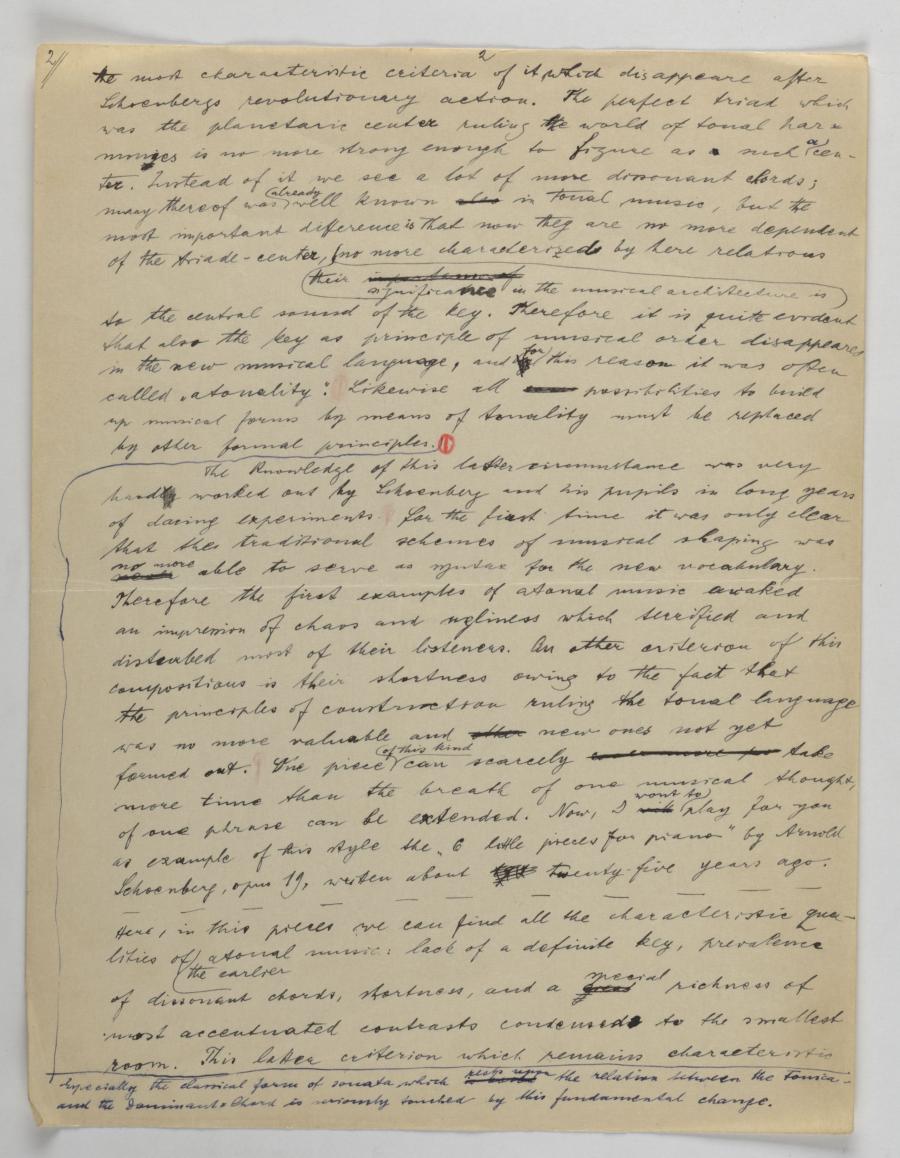 2//
2
the most characteristic criteria of it, which disappeare after
Schoenbergs revolutionary action. The perfect triad which
was the planetaric center ruling the world of tonal har-
monies is no more strong enough to figure as such a cen-
ter. Instead of it we see a lot of more dissonant chords;
many thereof was already well known also in tonal music, but the
most important difference is that now they are no more dependent
of the triade-center, no more characterized by here relations
their importance of
significance in the musical architecture is
to the central sound of the key. Therefore it is quite evident
that also the key as principle of musical order disappeares
in the new musical language, and for this reason it was often
called „atonality". Likewise all possibilities to build
up musical forms by means of tonality must be replaced
by other formal principles.
The knowledge of this latter circumstance was very
hardly worked out by Schoenberg and his pupils in long years
of daring experiments. For the first time it was only clear
that the traditional schemes of musical shaping was
no more able to serve as syntax for the new vocabulary.
Therefore the first examples of atonal music awaked
an impression of chaos and ugliness which terrified and
disturbed most of their listeners. An other criterion of this
compositions is their shortness owing to the fact that
the principles of construction ruling the tonal language
was no more valuable and other new ones not yet
formed out. One piece of this kind can scarcely take
more time than the breath of one musical thought,
of one phrase can be extended. Now, I want to play for you
as example of this style the „6 little pieces for piano" by Arnold
Schoenberg, opus 19, writen about twenty-five years ago.
Here, in this pieces we can find all the characteristic qua-
lities of the earlier atonal music: lack of a definite key, prevalence
of dissonant chords, shortness, and a special richness of
most accentuated contrasts condensed to the smallest
room. This latter criterion which remains characteristic
Especially the classical form of sonata which rests upon the relation between the Tonica-
and the Dominant-Chord is seriously touched by this fundamental change.